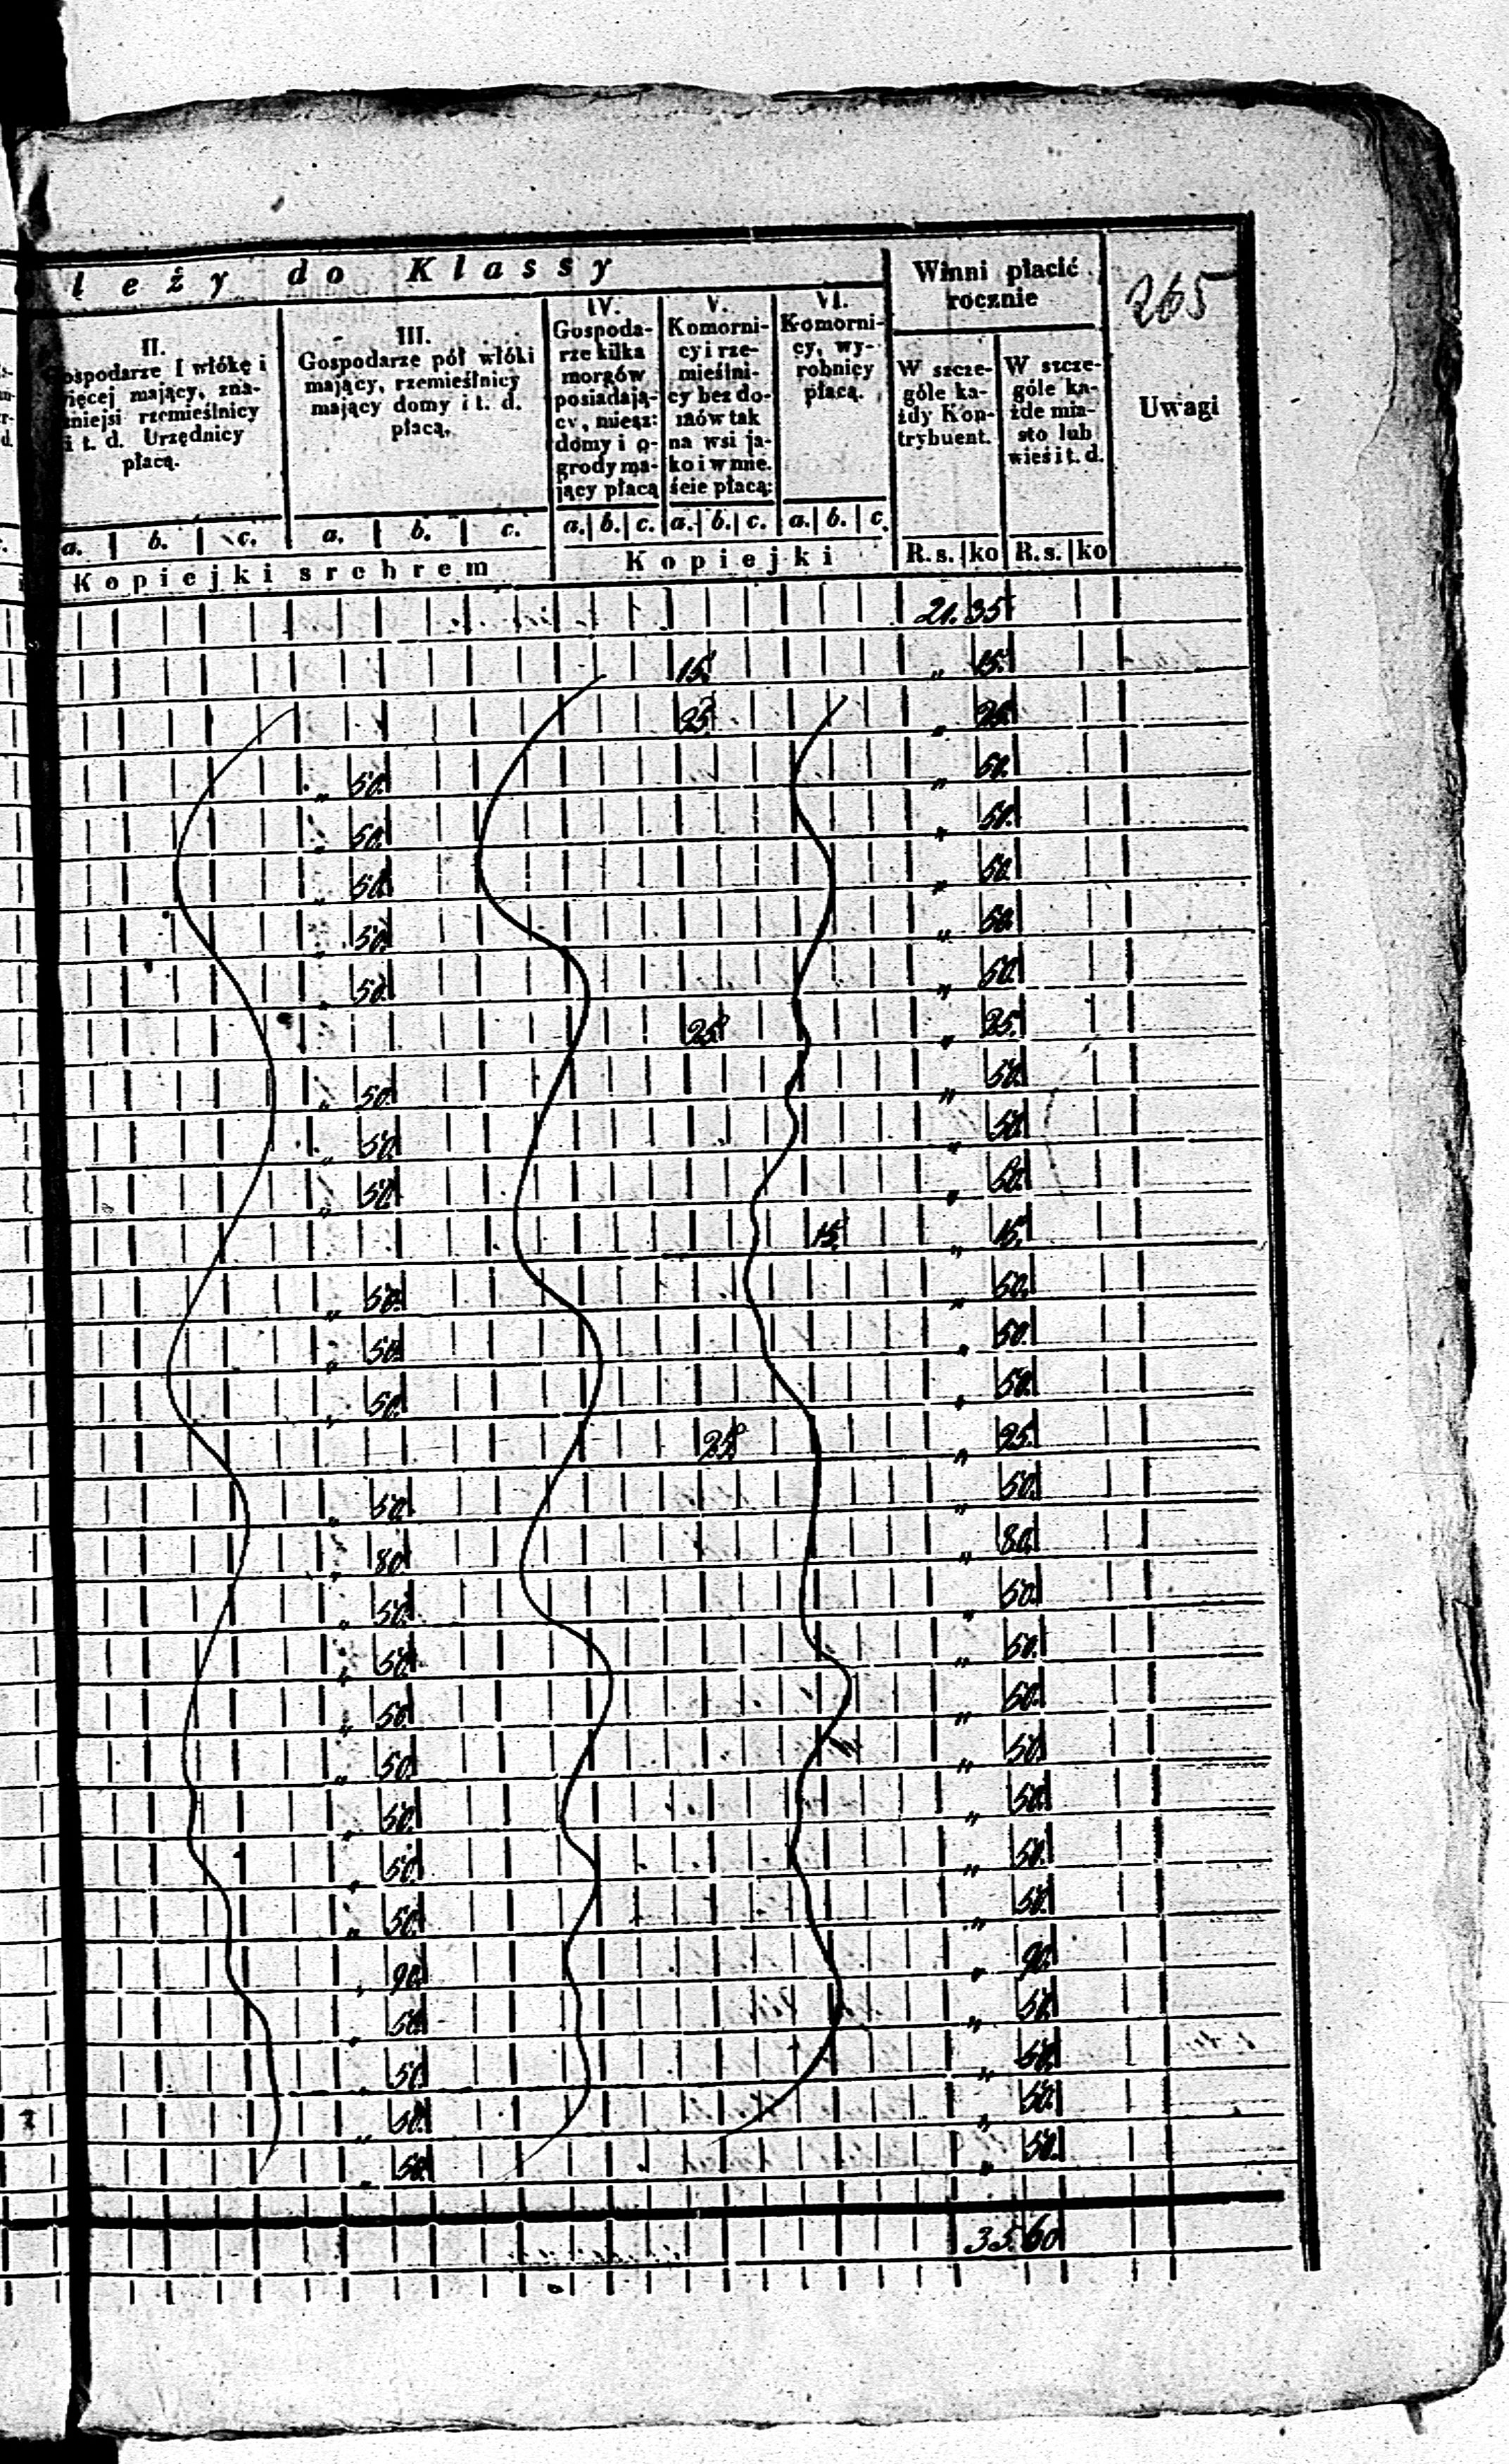 leży do Klassy
Winni płacić rocznie
265
II.
ospodarze I włókę i
ięcej mający, zna-
niejsi rzemieślnicy
i t. d. Urzędnicy
płacą.
III.
Gospodarze pół włóki
mający, rzemieślnicy
mający domy i t. d.
płacą.
IV.
Gospoda-
rze kilka
morgów
posiadają-
cy, miesz:
domy i o-
grody ma-
jący płacą
V.
Komorni-
cy i rze-
mieślni-
cy bez do-
mów tak
na wsi ja-
ko i w mie-
ście płacą:
VI.
Komorni-
cy, wy-
robnicy
płacą.
W szcze-
góle ka-
żdy Kon-
trybuent.
W szcze-
góle ka-
żde mia-
sto lub
wieś i t. d.
Uwagi
a. b. c. a. b. c. a. b. c. a. b. c. a. b. c.
Kopiejki srebrem Kopiejki R. s. ko R. s. ko
21. 35
15. " 15.
25. " 25.
" 50. " 50.
" 50. " 50.
" 50. " 50.
" 50. " 50.
" 50. " 50.
25. " 25.
" 50. " 50.
" 50. " 50.
" 50. " 50.
15. " 15.
" 50. " 50.
" 50. " 50.
" 50. " 50.
25. " 25.
" 50. " 50.
" 80. " 80.
" 50. " 50.
" 50. " 50.
" 50. " 50.
" 50. " 50.
" 50. " 50.
" 50. " 50.
" 50. " 50.
" 90. " 90.
" 50. " 50.
" 50. " 50.
" 50. " 50.
" 50. " 50.
35. 60